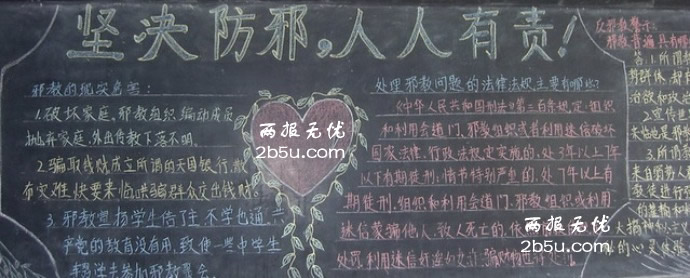 坚决防邪,人人有责!
邪教的现实危害:
1.破坏家庭。邪教组织煽动成员
抛弃家庭,外出传教下落不明。
2.骗取钱财成立所谓的天国银行,散
布灾难快要来临哄骗群众交出钱财
3.邪教宣扬学生信了主不学也通,共
产党的教育没有用,致使一些中学生
两报无优
2b5u.com
处理邪教问题的法律法规主要有哪些?
《中华人民共和国刑法》第三百条规定:组织
和利用会道门、邪教组织或者利用迷信破坏
国家法律、行政法规实施的,处3年以上7年
以下有期徒刑;情节特别严重的,处7年以上有
期徒刑。组织和利用会道门、邪教组织或利用
迷信蒙骗他人,致人死亡的,依
处罚。利用迷信奸淫妇女、诈骗财物
两报无优
2b5u.com
反邪教警示:
邪教普遍具有哪
1.所谓教
治欲和政
2.宣传世
3.所谓教
来自信众
教徒进行
的蒙精和